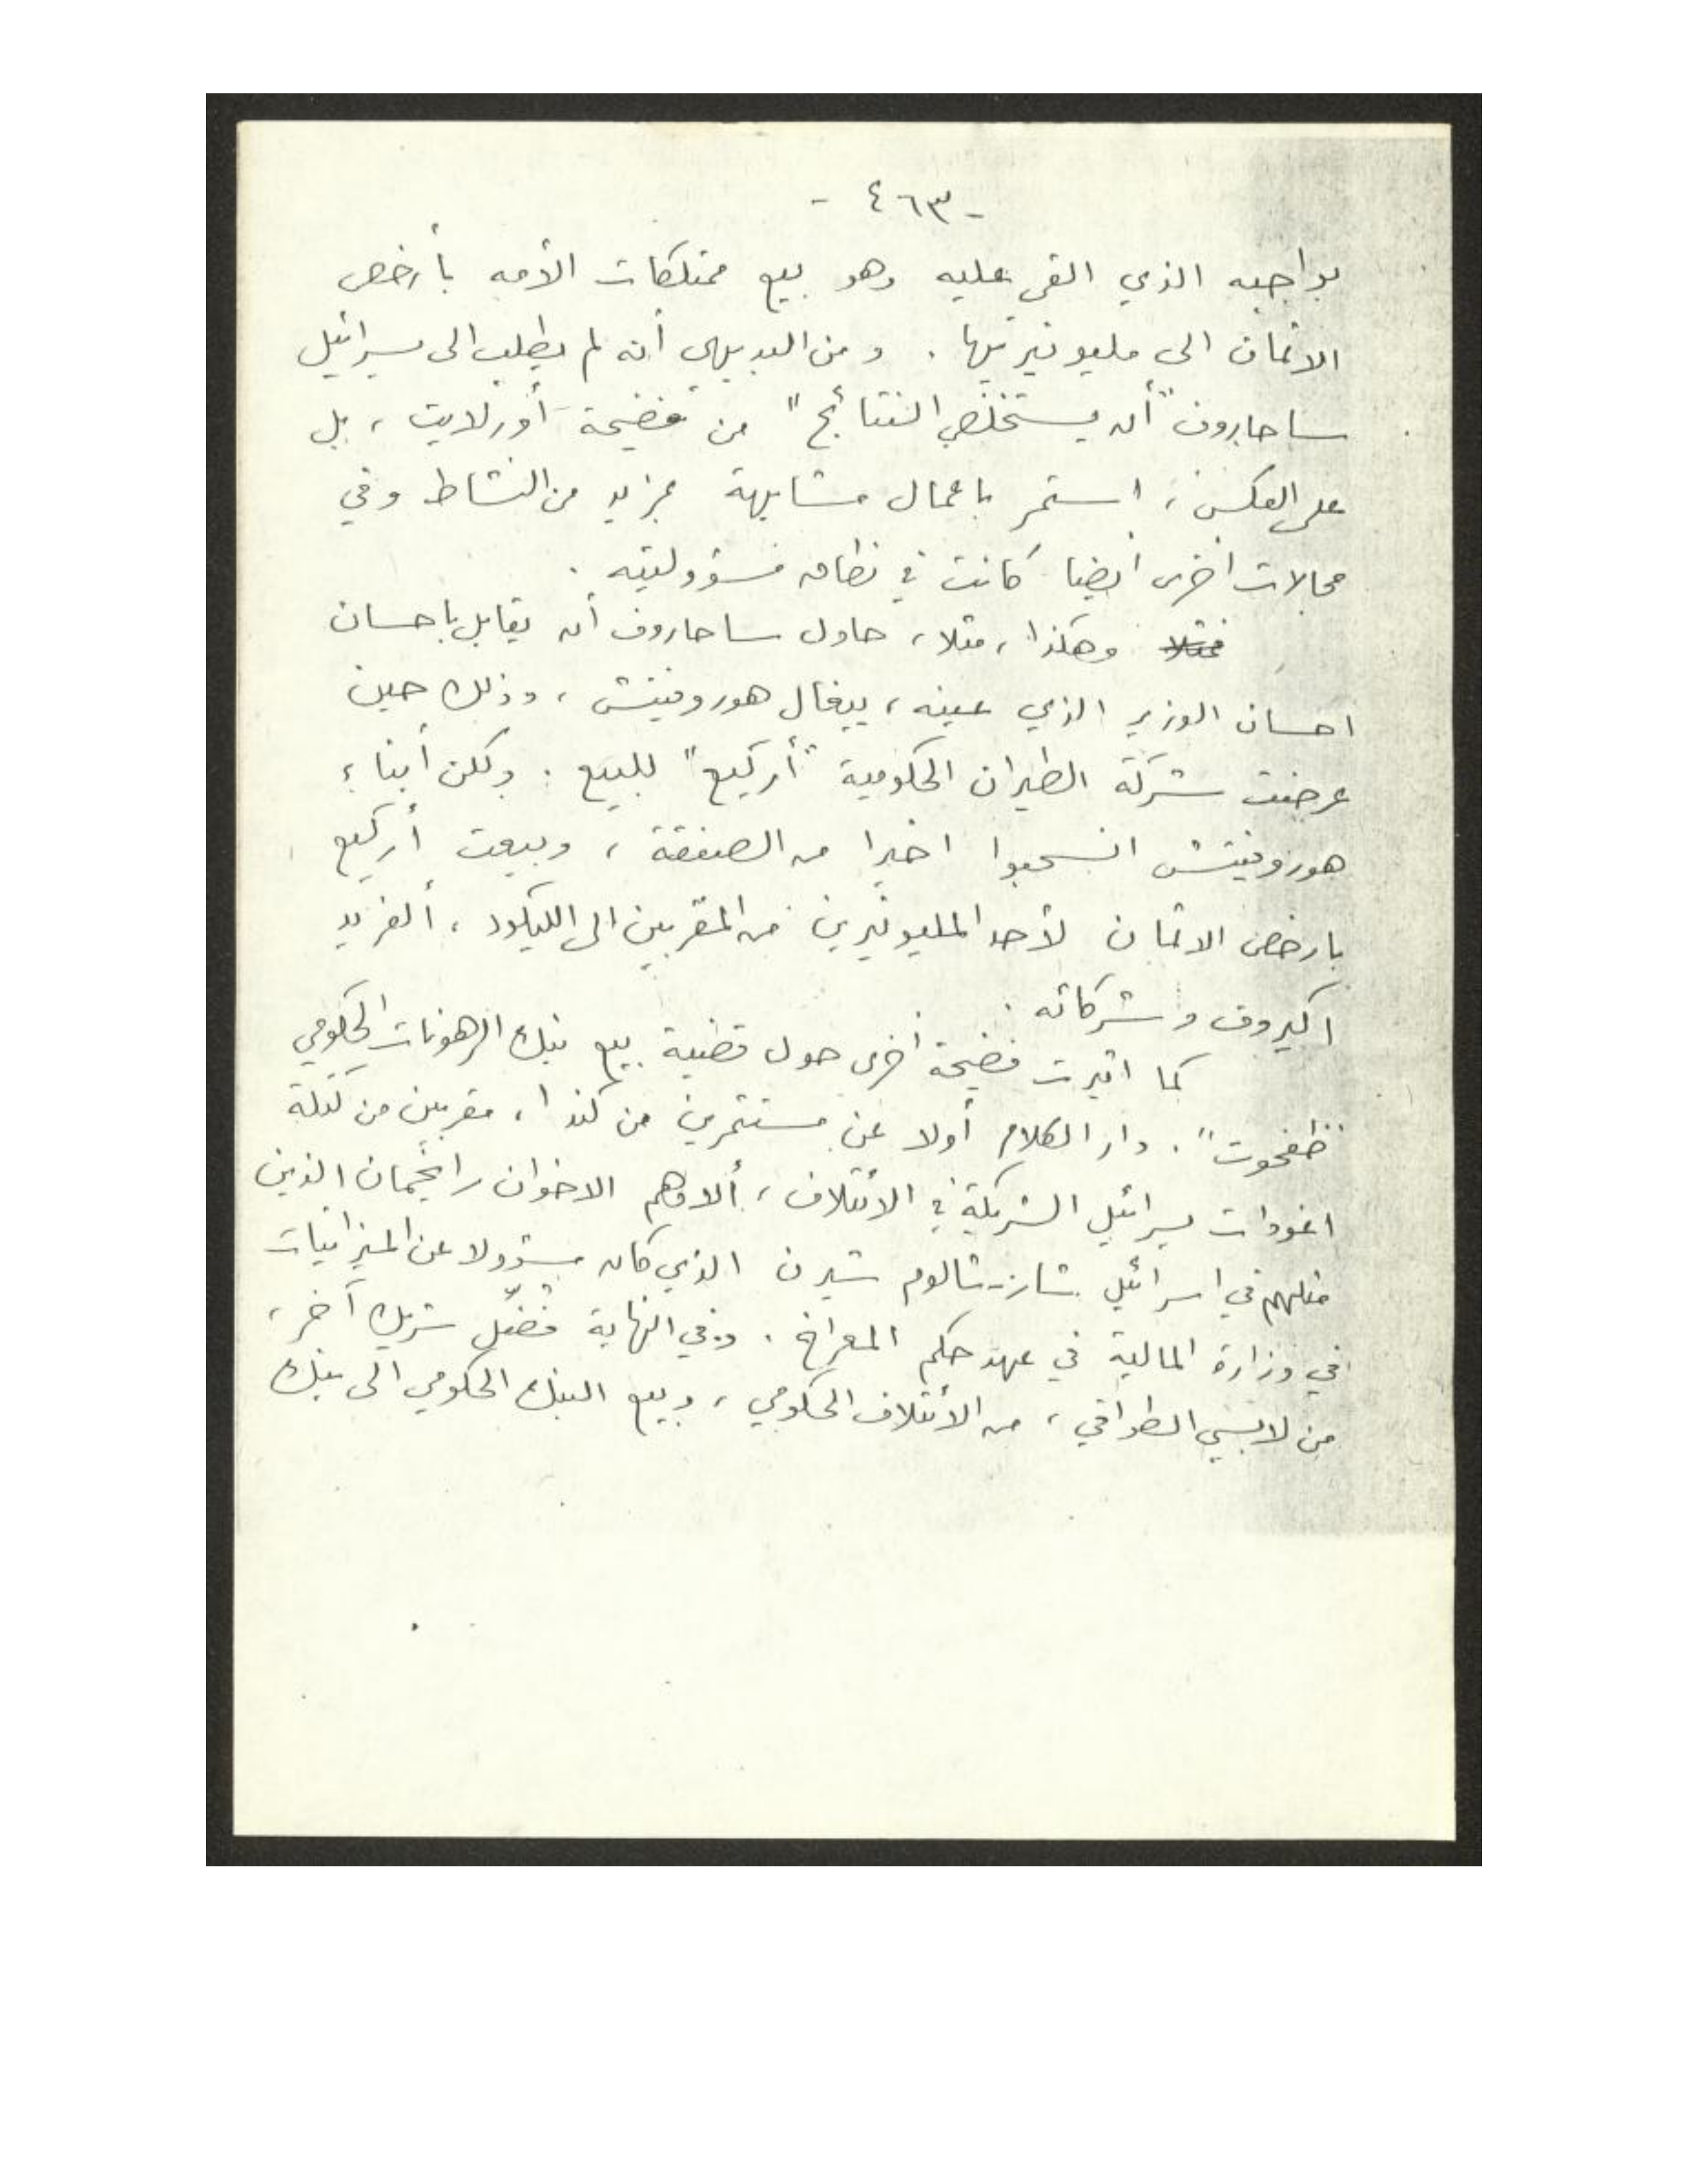 - ٤٦٣ -
بواجبه الذي القي عليه وهو بيع ممتلكات الأمه بأرخص
الاثمان الى مليونيرتيها . ومن البديهي أنه لم يطلب الى يسرائيل
ساحاروف "أن يستخلص النتائج" من فضيحة أورلايت ، بل
على العكس ، استمر باعمال مشابهة بمزيد من النشاط وفي
مجالات اخرى ايضا كانت في نطاق مسؤوليته .
وهكذا ، مثلا ، حاول ساحاروف أن يقابل باحسان
احسان الوزير الذي عينه ، ييغال هوروفيتش ، وذلك حين
عرضت شركة الطيران الحكومية "أركيع" للبيع . ولكن أبناء
هوروفيتش انسحبوا اخيرا من الصفقة ، وبيعت أركيع
بارخص الاثمان لأحد المليونيرين من المقربين الى الليكود ، ألفريد
اكيروف وشركائه .
كما اثيرت فضيحة أخرى حول قضية بيع بنك الرهونات الحكومي
"طفحوت" . دار الكلام أولا عن مستثمرين من كندا ، مقربين من كتلة
اغودات يسرائيل الشريكة في الائتلاف ، ألا وهم الاخوان رايخمان الذين
مثلهم في اسرائيل شار-شالوم شيرن الذي كان مسؤولا عن الميزانيات
في وزارة المالية في عهد حكم المعراخ . وفي النهاية فضّل شريك آخر ،
من لابسي الطواقي ، من الائتلاف الحكومي ، وبيع البنك الحكومي الى بنك